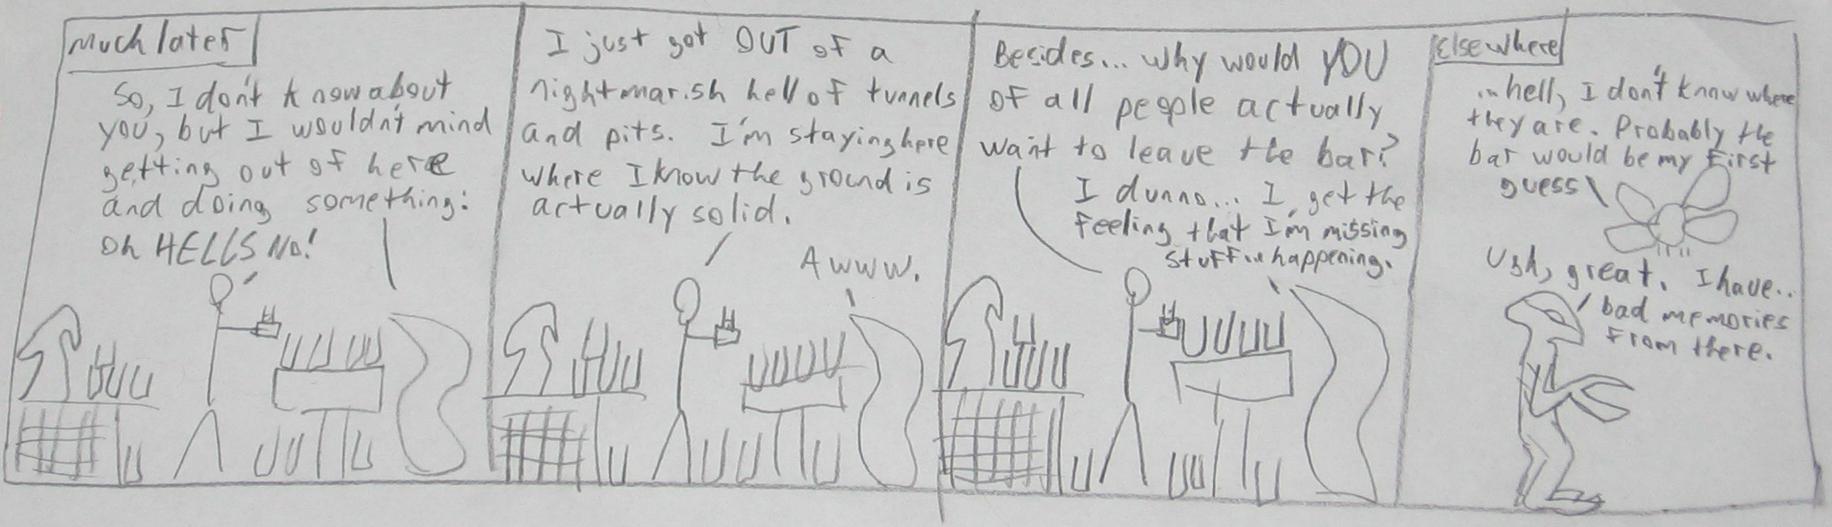 Much later
So, I don't know about
you, but I wouldn't mind
getting out of here
and doing something.
Oh HELLS No!
I just got OUT of a
nightmarish hell of tunnels
and pits. I'm staying here
where I know the ground is
actually solid.
Awww.
Besides... why would YOU
of all people actually
want to leave the bar?
I dunno... I get the
feeling that I'm missing
stuff happening.
Elsewhere
...hell, I don't know where
they are. Probably the
bar would be my first
guess
Ugh, great. I have..
bad memories
from there.